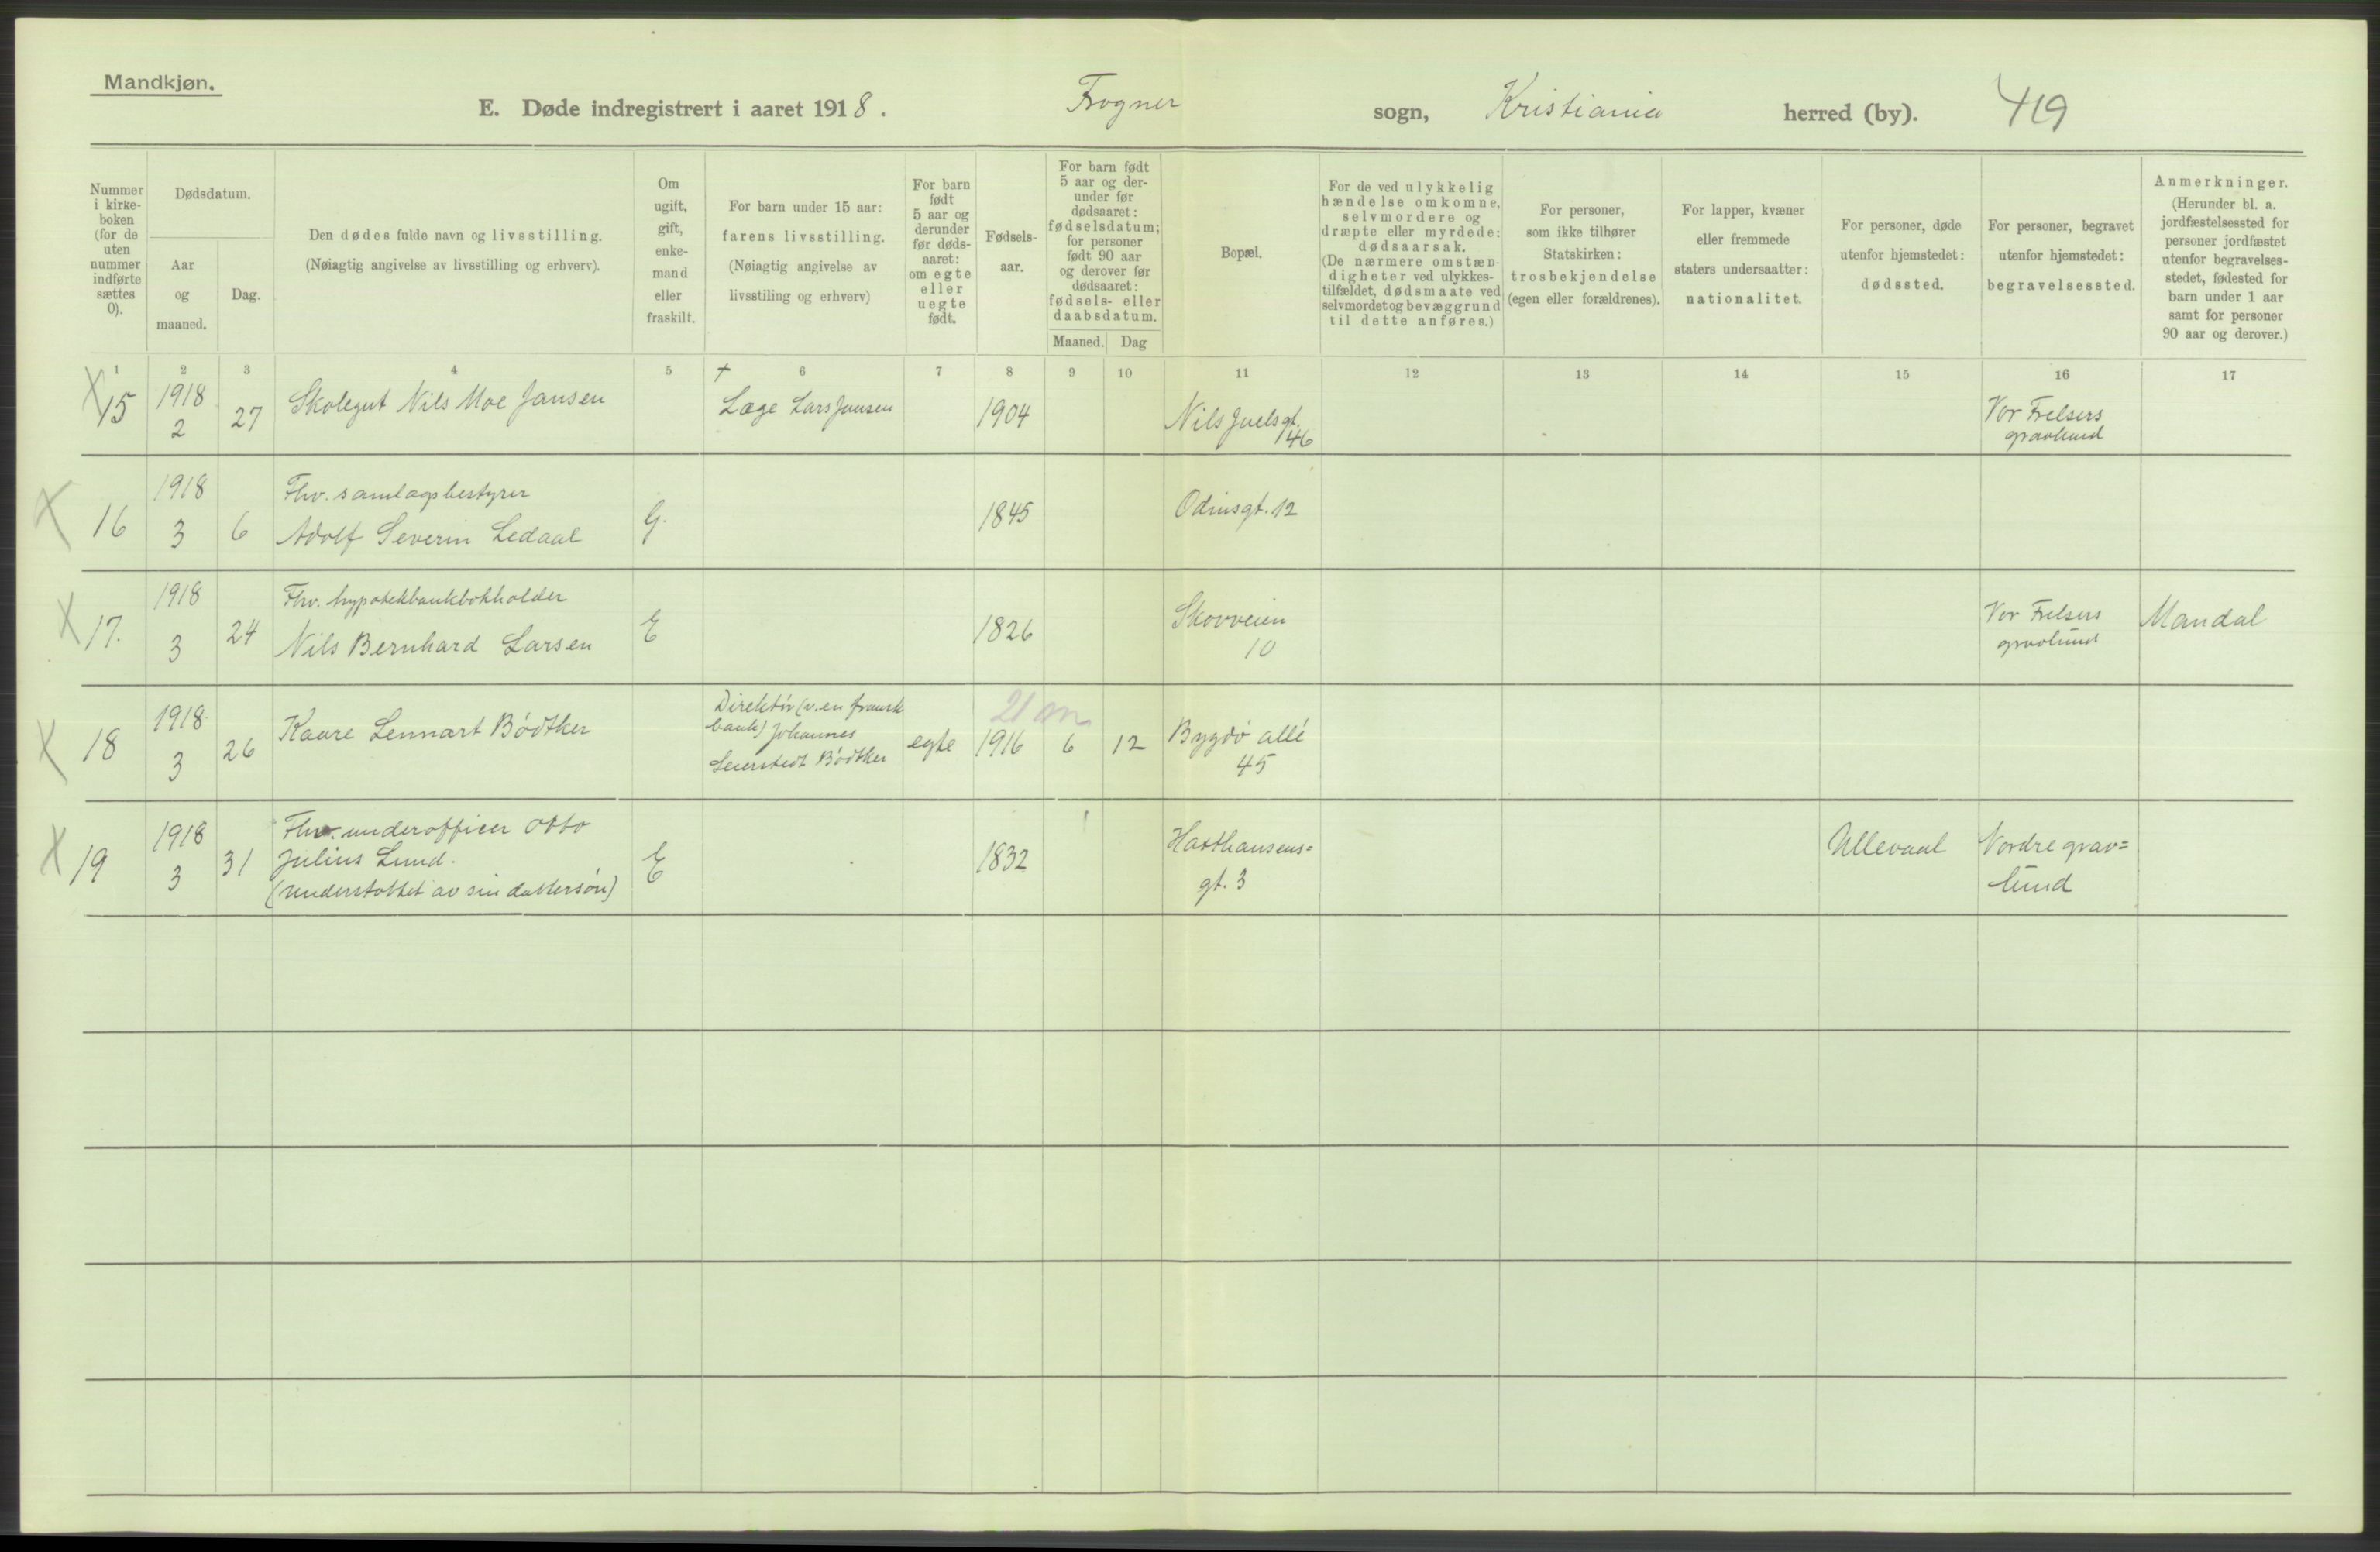 Mandkjøn.
E. Døde indregistrert i aaret 1918. Frogner sogn, Kristiania herred (by). 419
Nummer
i kirke-
boken
(for de
uten
nummer
indførte
sættes
0).
Dødsdatum.
Aar
og
maaned.
Dag.
Den dødes fulde navn og livsstilling.
(Nøiagtig angivelse av livsstilling og erhverv).
Om
ugift,
gift,
enke-
mand
eller
fraskilt.
For barn under 15 aar:
farens livsstilling.
(Nøiagtig angivelse av
livsstiling og erhverv)
For barn
født
5 aar og
derunder
før døds-
aaret:
om egte
eller
uegte
født.
Fødsels-
aar.
For barn født
5 aar og der-
under før
dødsaaret:
fødselsdatum;
for personer
født 90 aar
og derover før
dødsaaret:
fødsels- eller
daabsdatum.
Maaned. Dag
Bopæl.
For de ved ulykkelig
hændelse omkomne,
selvmordere og
dræpte eller myrdede:
dødsaarsak.
(De nærmere omstæn-
digheter ved ulykkes-
tilfældet, dødsmaate ved
selvmordet og bevæggrund
til dette anføres.)
For personer,
som ikke tilhører
Statskirken:
trosbekjendelse
(egen eller forældrenes).
For lapper, kvæner
eller fremmede
staters undersaatter:
nationalitet.
For personer, døde
utenfor hjemstedet:
dødssted.
For personer, begravet
utenfor hjemstedet:
begravelsessted.
Anmerkninger.
(Herunder bl. a.
jordfæstelsessted for
personer jordfæstet
utenfor begravelses-
stedet, fødested for
barn under 1 aar
samt for personer
90 aar og derover.)
1 2 3 4 5 6 7 8 9 10 11 12 13 14 15 16 17
X 15
1918
2
27
Skolegut Nils Moe Jansen
+
Læge Lars Jansen
1904
Nils Juels gt.
46
Vor Frelsers
gravlund
X 16
1918
3
6
Fhv. samlagsbestyrer
Adolf Severin Ledaal
G.
1845
Odinsgt. 12
X 17.
1918
3
24
Fhv. hypotekbankbokholder
Nils Bernhard Larsen
E
1826
Skovveien
10
Vor Frelsers
gravlund
Mandal
X 18
1918
3
26
Kaare Lennart Bødtker
Direktør (v. en fransk
bank) Johannes
Seierstedt Bødtker
egte
21 m
1916
6
12
Bygdø allé
45
X 19
1918
3
31
Fhv. underofficer Otto
Julius Lund.
(understøttet av sin dattersøn)
E
1832
Hafthausens=
gt. 3
Ullevaal
Nordre grav=
lund